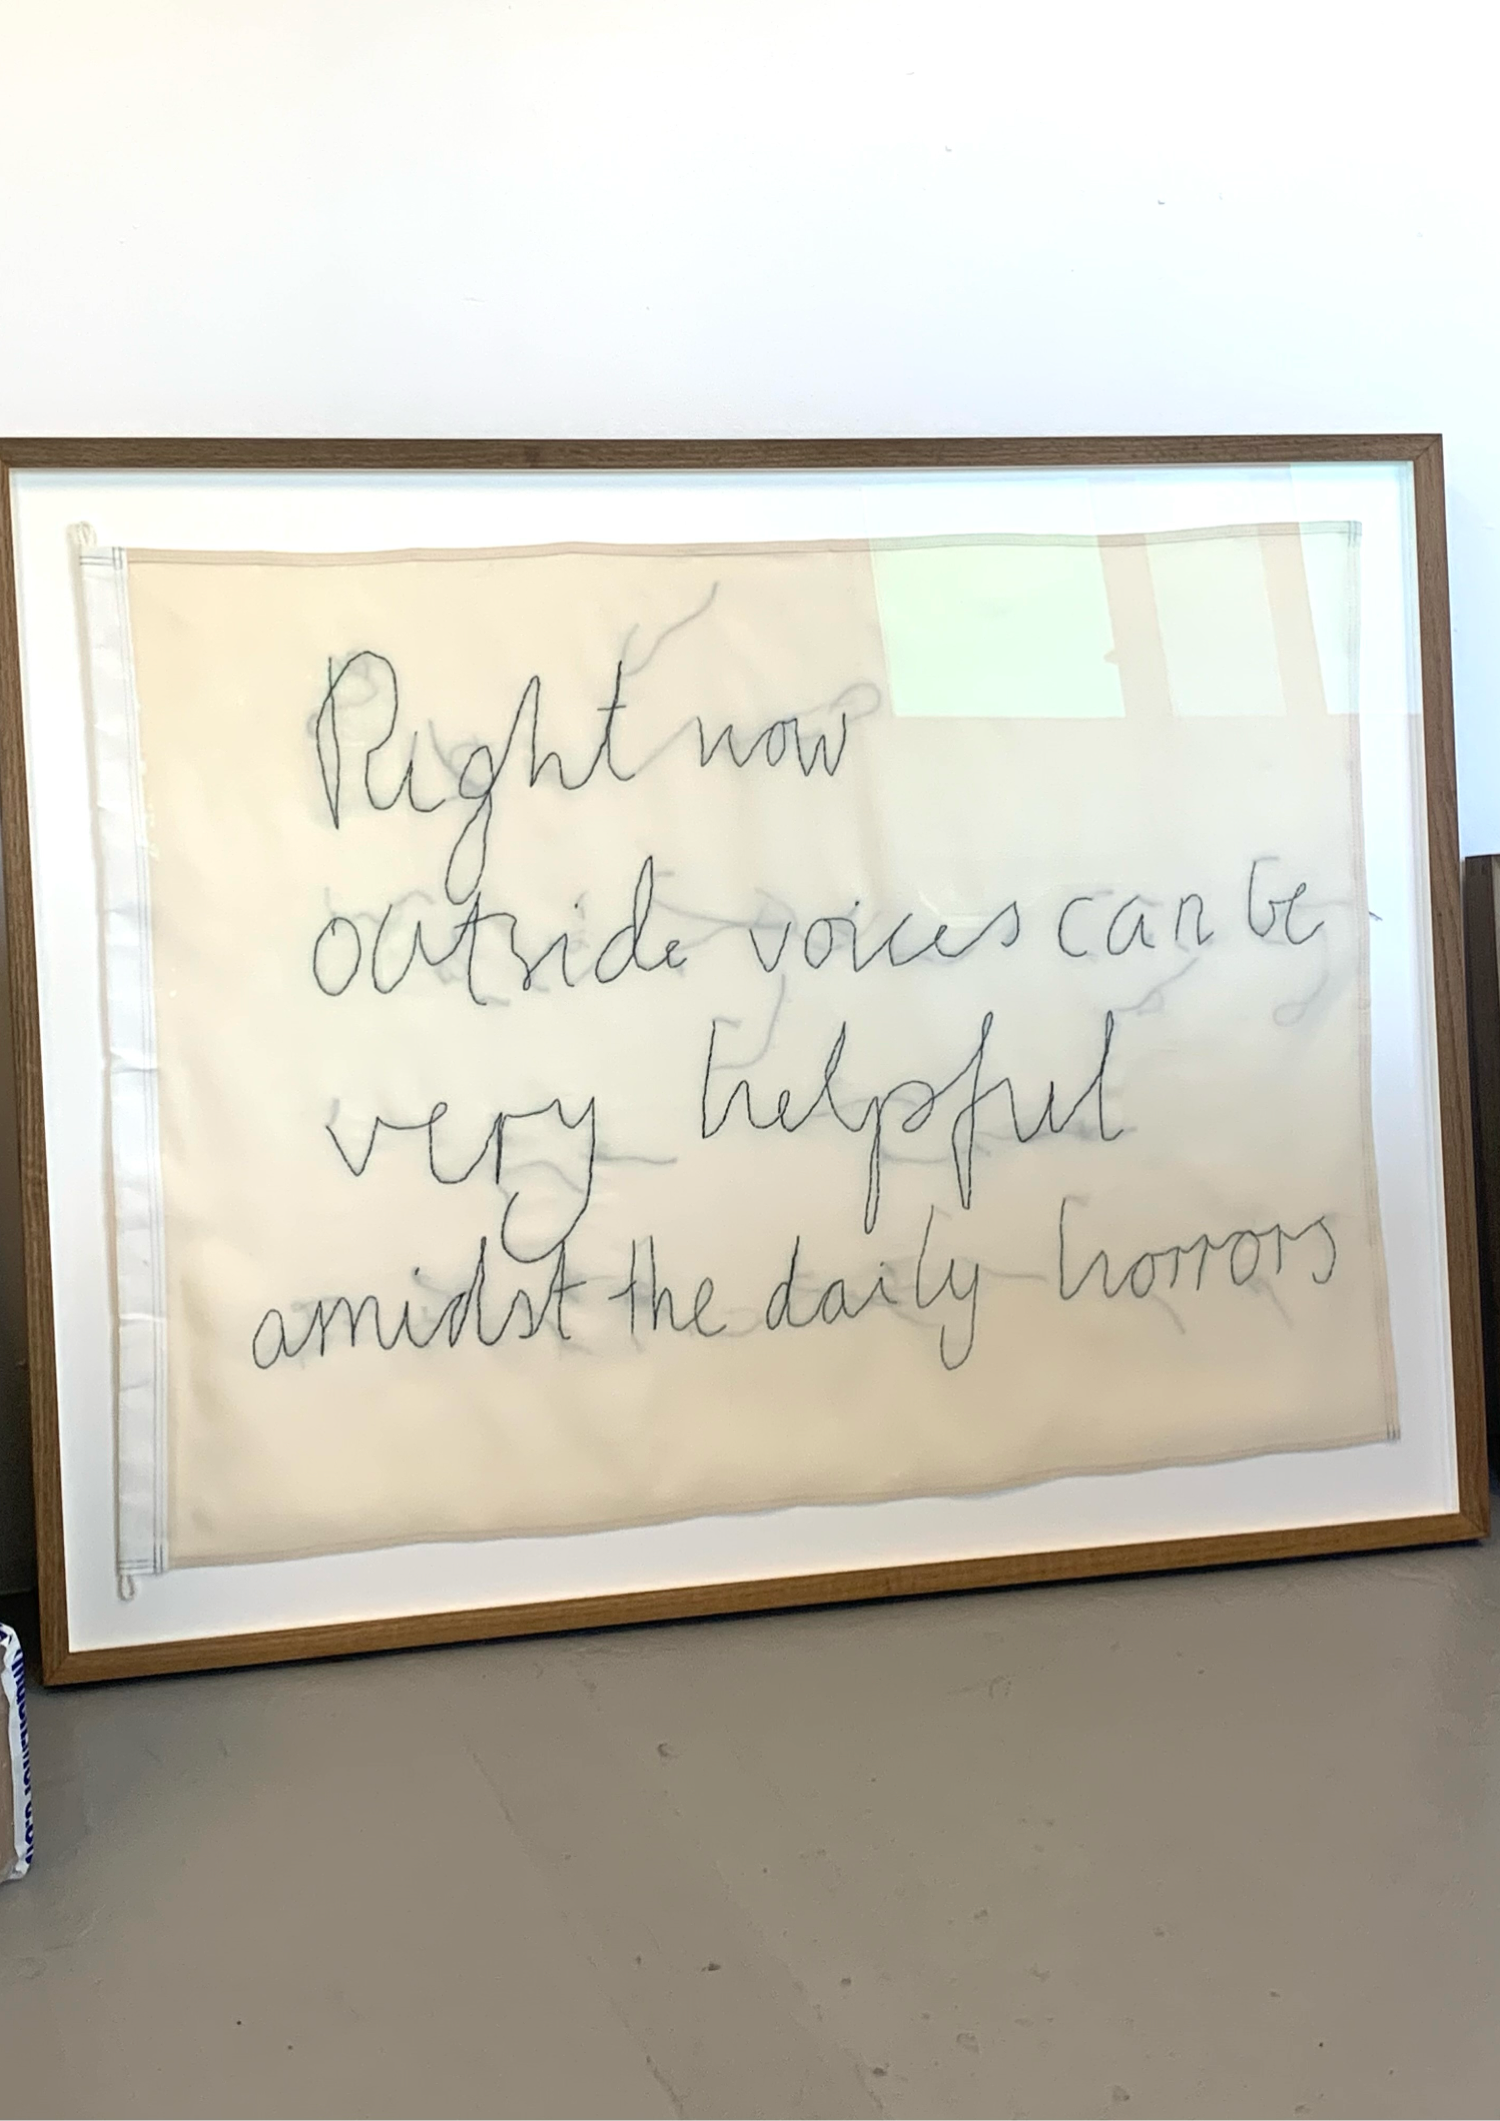 Right now
outside voices can be
very helpful
amidst the daily horrors